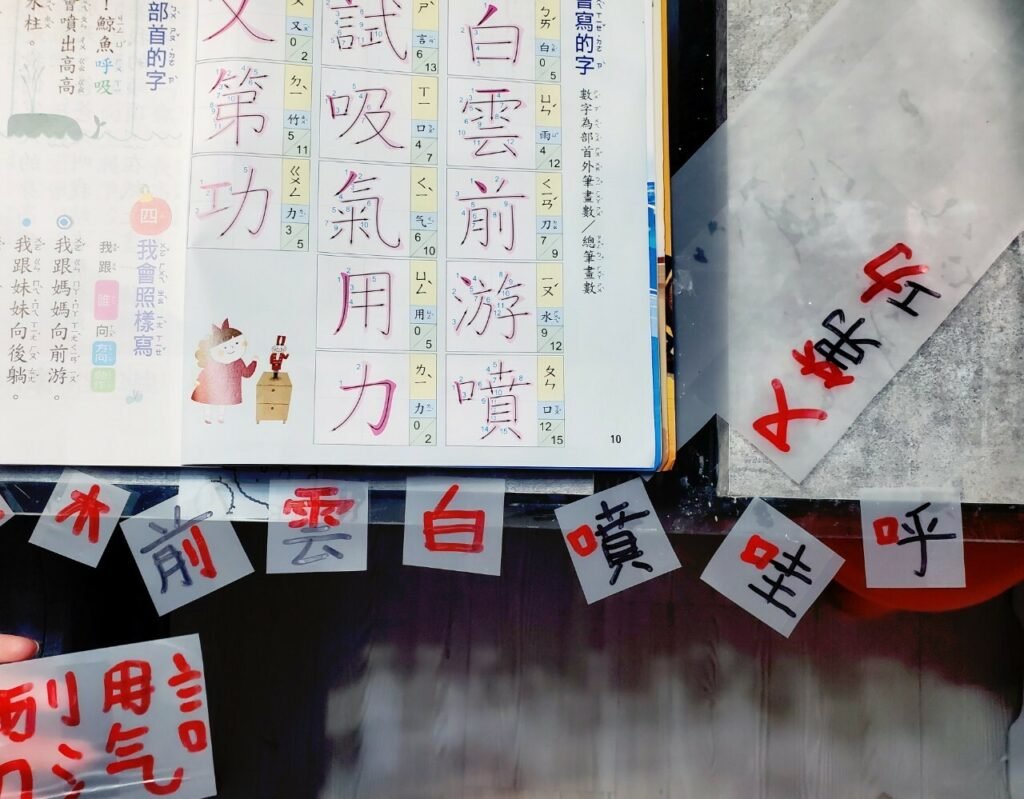 會寫的字
數字為部首外筆畫數/總筆畫數
白 ㄅㄞˊ 白 0 5
雲 ㄩㄣˊ 雨 4 12
前 ㄑㄧㄢˊ 刀 7 9
游 ㄧㄡˊ 水 9 12
噴 ㄆㄣ 口 12 15
試 ㄕˋ 言 6 13
吸 ㄒㄧ 口 4 7
氣 ㄑㄧˋ 气 6 10
用 ㄩㄥˋ 用 0 5
力 ㄌㄧˋ 力 0 2
又 ㄧㄡˋ 又 0 2
第 ㄉㄧˋ 竹 5 11
功 ㄍㄨㄥ 力 3 5
10
部首的字
！鯨魚呼吸
會噴出高高
水柱。
四
我會照樣寫
我跟誰向方向
我跟媽媽向前游。
我跟妹妹向後躺。
又第功
前
雲
白
噴
哇
呼
言
用气